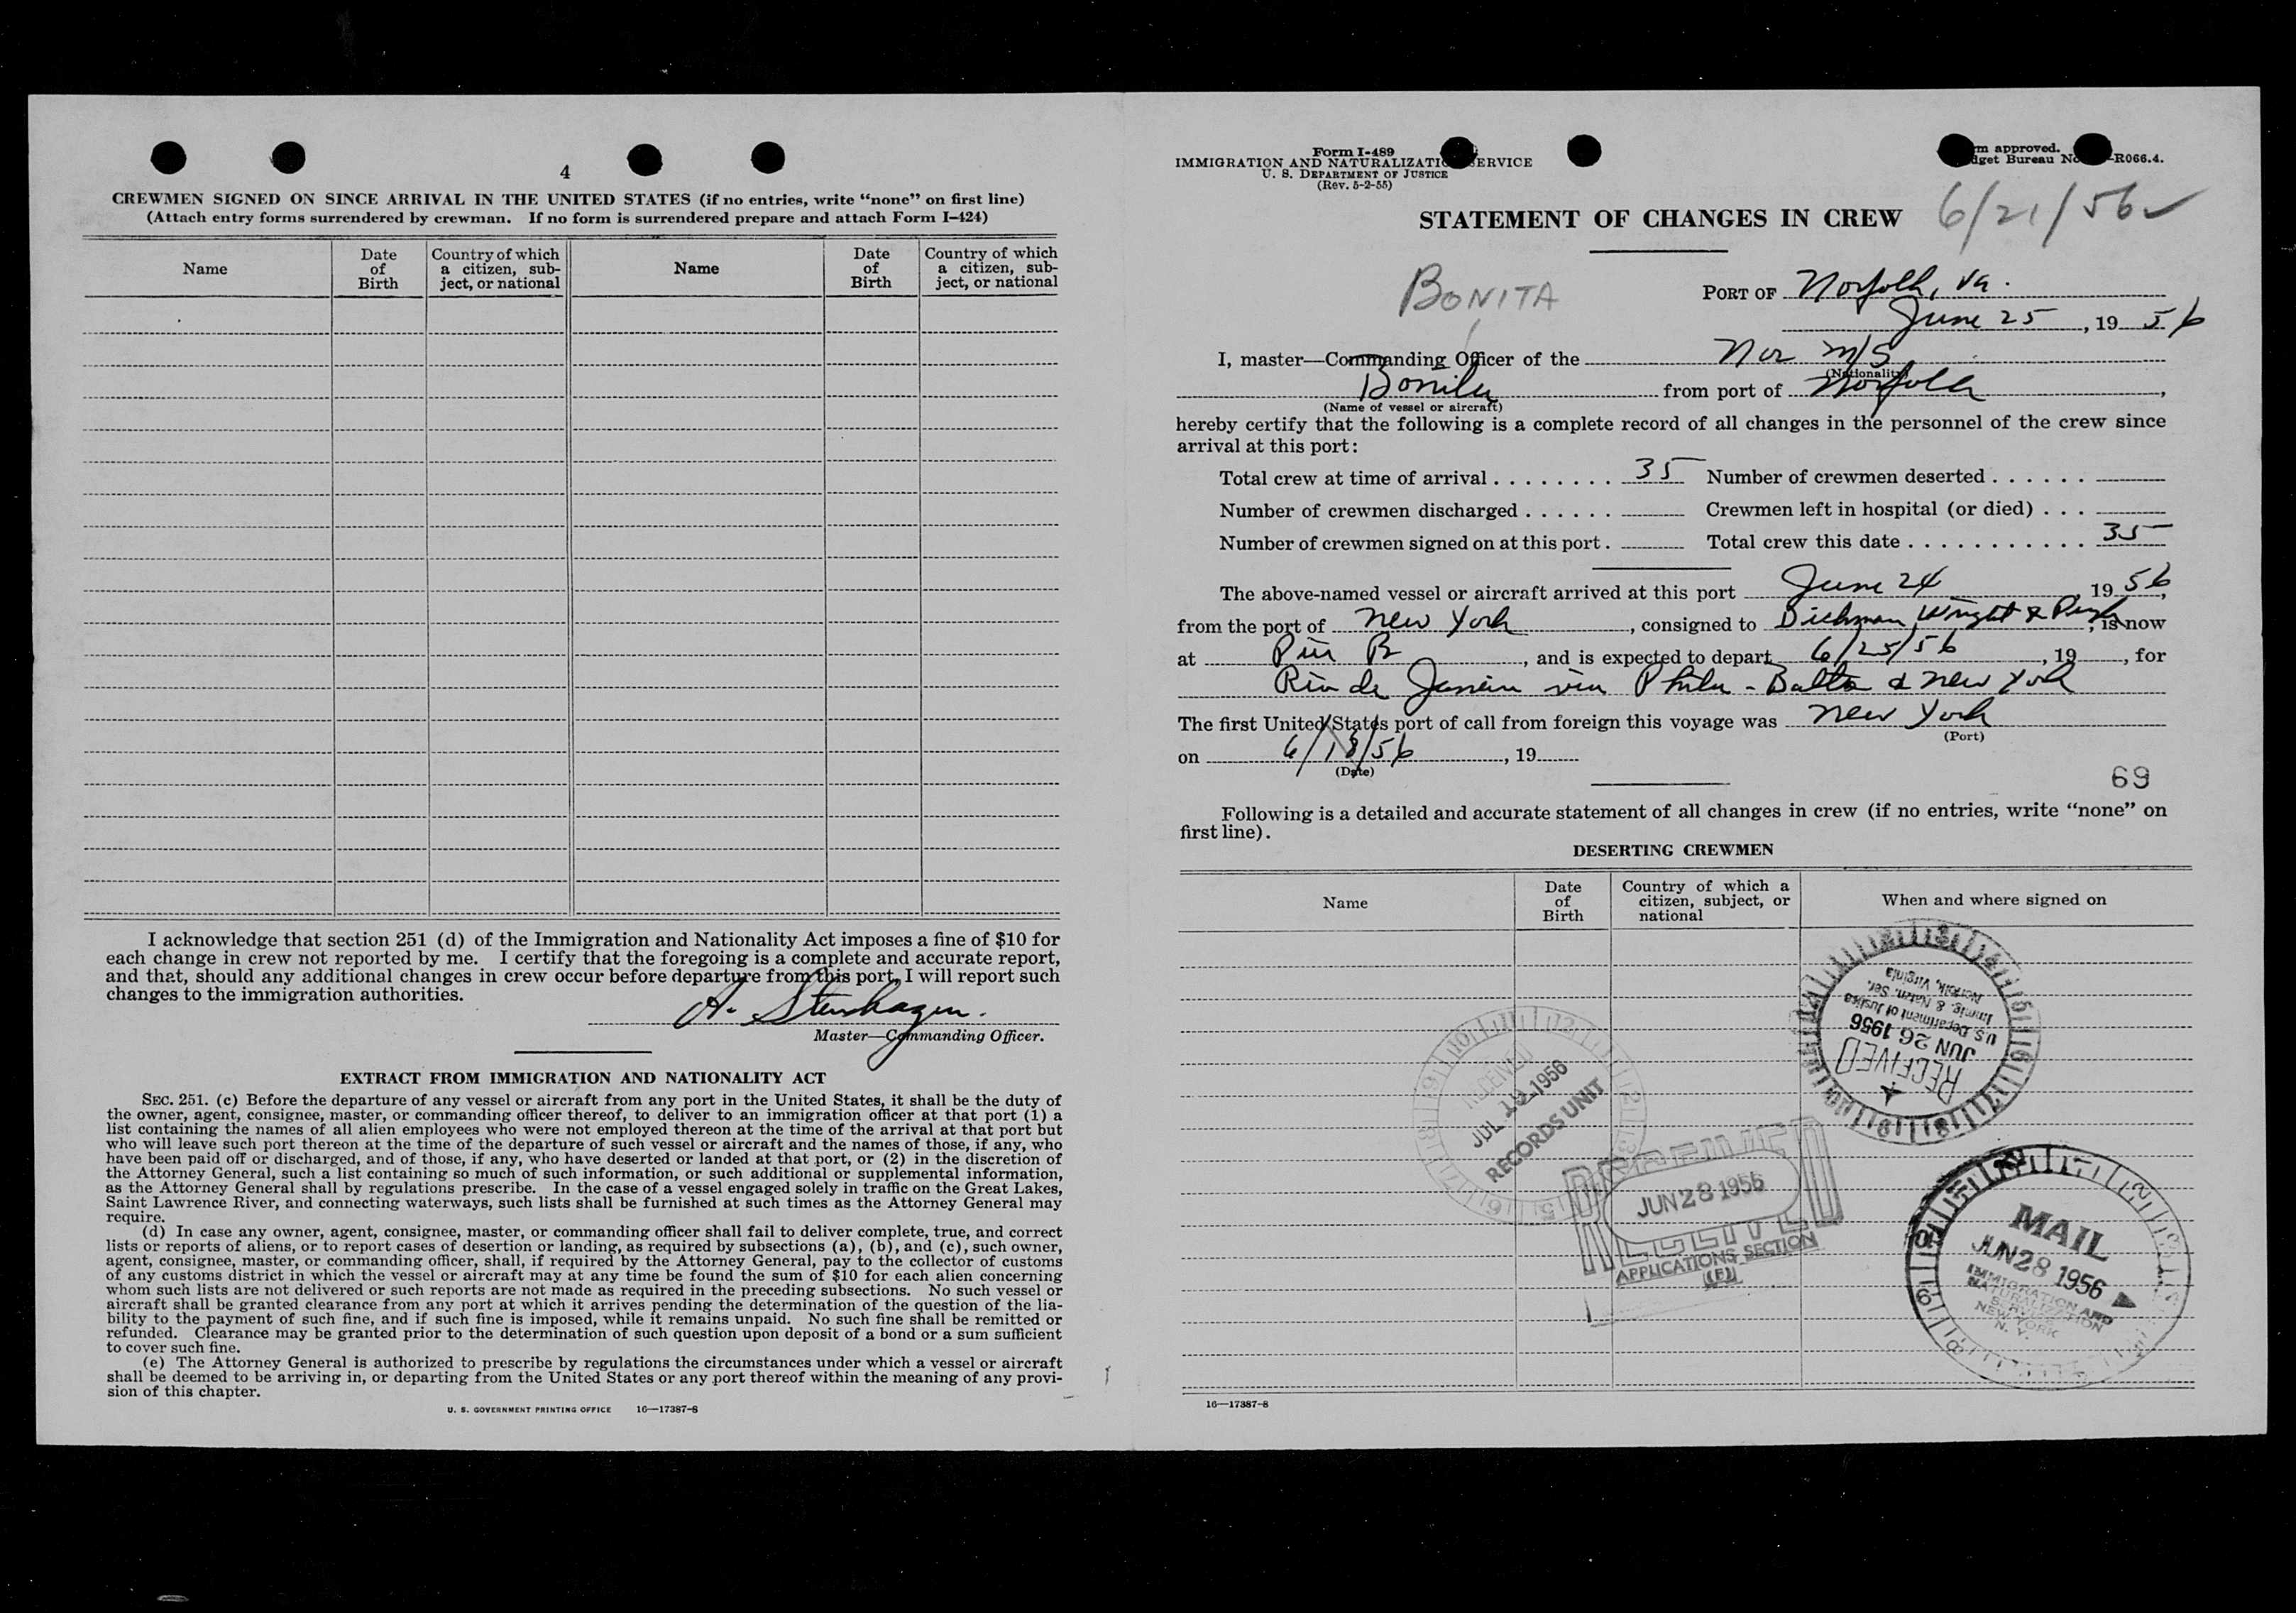 4
CREWMEN SIGNED ON SINCE ARRIVAL IN THE UNITED STATES (if no entries, write “none” on first line)
(Attach entry forms surrendered by crewman. If no form is surrendered prepare and attach Form I–424)
Name Date of Birth Country of which a citizen, sub-ject, or national Name Date of Birth Country of which a citizen, sub-ject, or national
I acknowledge that section 251 (d) of the Immigration and Nationality Act imposes a fine of $10 for
each change in crew not reported by me. I certify that the foregoing is a complete and accurate report,
and that, should any additional changes in crew occur before departure from this port, I will report such
changes to the immigration authorities.
A. Stenhagen.
Master—Commanding Officer.
EXTRACT FROM IMMIGRATION AND NATIONALITY ACT
SEC. 251. (c) Before the departure of any vessel or aircraft from any port in the United States, it shall be the duty of
the owner, agent, consignee, master, or commanding officer thereof, to deliver to an immigration officer at that port (1) a
list containing the names of all alien employees who were not employed thereon at the time of the arrival at that port but
who will leave such port thereon at the time of the departure of such vessel or aircraft and the names of those, if any, who
have been paid off or discharged, and of those, if any, who have deserted or landed at that port, or (2) in the discretion of
the Attorney General, such a list containing so much of such information, or such additional or supplemental information,
as the Attorney General shall by regulations prescribe. In the case of a vessel engaged solely in traffic on the Great Lakes,
Saint Lawrence River, and connecting waterways, such lists shall be furnished at such times as the Attorney General may
require.
(d) In case any owner, agent, consignee, master, or commanding officer shall fail to deliver complete, true, and correct
lists or reports of aliens, or to report cases of desertion or landing, as required by subsections (a), (b), and (c), such owner,
agent, consignee, master, or commanding officer, shall, if required by the Attorney General, pay to the collector of customs
of any customs district in which the vessel or aircraft may at any time be found the sum of $10 for each alien concerning
whom such lists are not delivered or such reports are not made as required in the preceding subsections. No such vessel or
aircraft shall be granted clearance from any port at which it arrives pending the determination of the question of the lia-
bility to the payment of such fine, and if such fine is imposed, while it remains unpaid. No such fine shall be remitted or
refunded. Clearance may be granted prior to the determination of such question upon deposit of a bond or a sum sufficient
to cover such fine.
(e) The Attorney General is authorized to prescribe by regulations the circumstances under which a vessel or aircraft
shall be deemed to be arriving in, or departing from the United States or any port thereof within the meaning of any provi-
sion of this chapter.
U. S. GOVERNMENT PRINTING OFFICE 16—17387-8
Form I-489
IMMIGRATION AND NATURALIZATIO ERVICE
U. S. DEPARTMENT OF JUSTICE
(Rev. 5-2-55)
rm approved.
dget Bureau No -R066.4.
STATEMENT OF CHANGES IN CREW
6/21/56
BONITA
PORT OF Norfolk, Va.
June 25, 1956
I, master—Commanding Officer of the Nor M/S
(Nationality)
Bonita from port of Norfolk,
(Name of vessel or aircraft)
hereby certify that the following is a complete record of all changes in the personnel of the crew since
arrival at this port:
Total crew at time of arrival 35 Number of crewmen deserted
Number of crewmen discharged Crewmen left in hospital (or died)
Number of crewmen signed on at this port Total crew this date 35
The above-named vessel or aircraft arrived at this port June 24, 1956,
from the port of New York, consigned to Dichman, Wright & Pugh, is now
at Pier B, and is expected to depart 6/25/56, 19, for
Rio de Janeiro via Phila - Balto & New York
The first United States port of call from foreign this voyage was New York
(Port)
on 6/18/56, 19
(Date)
69
Following is a detailed and accurate statement of all changes in crew (if no entries, write “none” on
first line).
DESERTING CREWMEN
Name Date of Birth Country of which a citizen, subject, or national When and where signed on
RECEIVED
JUN 26 1956
U.S. Department of Justice
Immig. & Natzn. Ser.
Norfolk, Virginia
RECEIVED
JUL 12 1956
RECORDS UNIT
RECEIVED
JUN 28 1956
APPLICATIONS SECTION
MAIL
JUN 28 1956
IMMIGRATION AND
NATURALIZATION
SERVICE
NEW YORK
N. Y.
16—17387-8